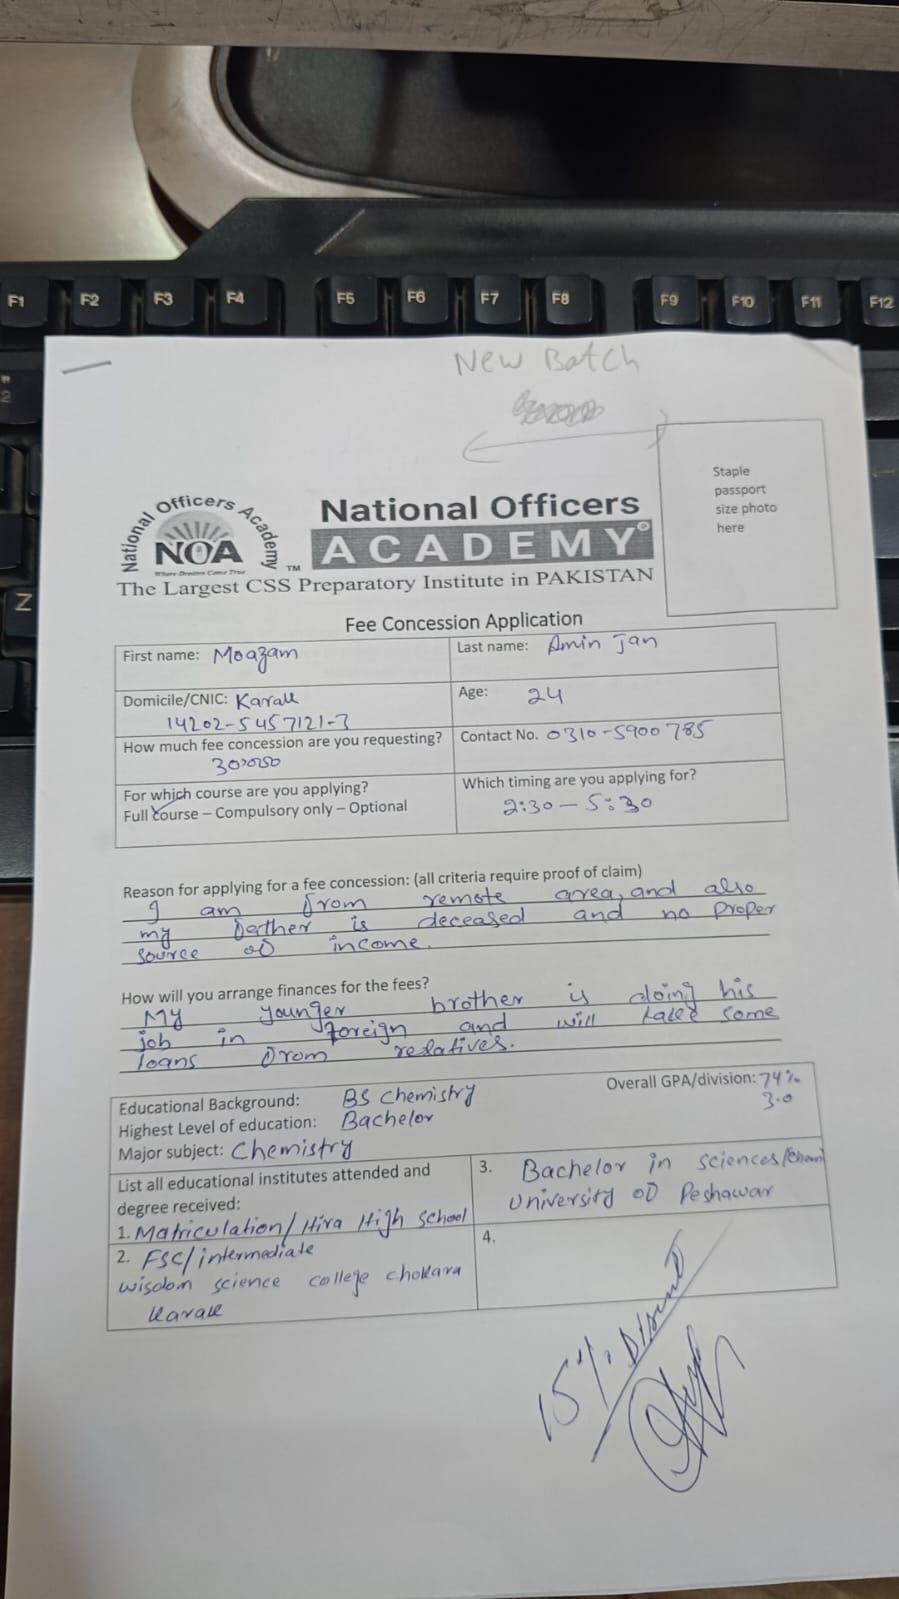 F1 F2 F3 F4 F5 F6 F7 F8 F9 F10 F11 F12
2
Z
New Batch
Staple
passport
size photo
here
National Officers Academy
NOA
Where Dreams Come True
TM
National Officers
ACADEMY
The Largest CSS Preparatory Institute in PAKISTAN
Fee Concession Application
First name: Moazam
Last name: Amin Jan
Domicile/CNIC: Karak
14202-5457121-3
Age: 24
How much fee concession are you requesting?
Contact No. 0310-5900785
For which course are you applying?
Full course – Compulsory only – Optional
Which timing are you applying for?
2:30 – 5:30
Reason for applying for a fee concession: (all criteria require proof of claim)
I am from remote area, and also
my father is deceased and no proper
source of income.
How will you arrange finances for the fees?
My younger brother is doing his
job in foreign and will take some
loans from relatives.
Educational Background: BS Chemistry
Overall GPA/division: 74%
3.0
Highest Level of education: Bachelor
Major subject: Chemistry
List all educational institutes attended and
degree received:
1. Matriculation/ Hira High School
2. FSC/intermediate
wisdom science college chokara
Karak
3. Bachelor in sciences/Chemi
University of Peshawar
4.
15%